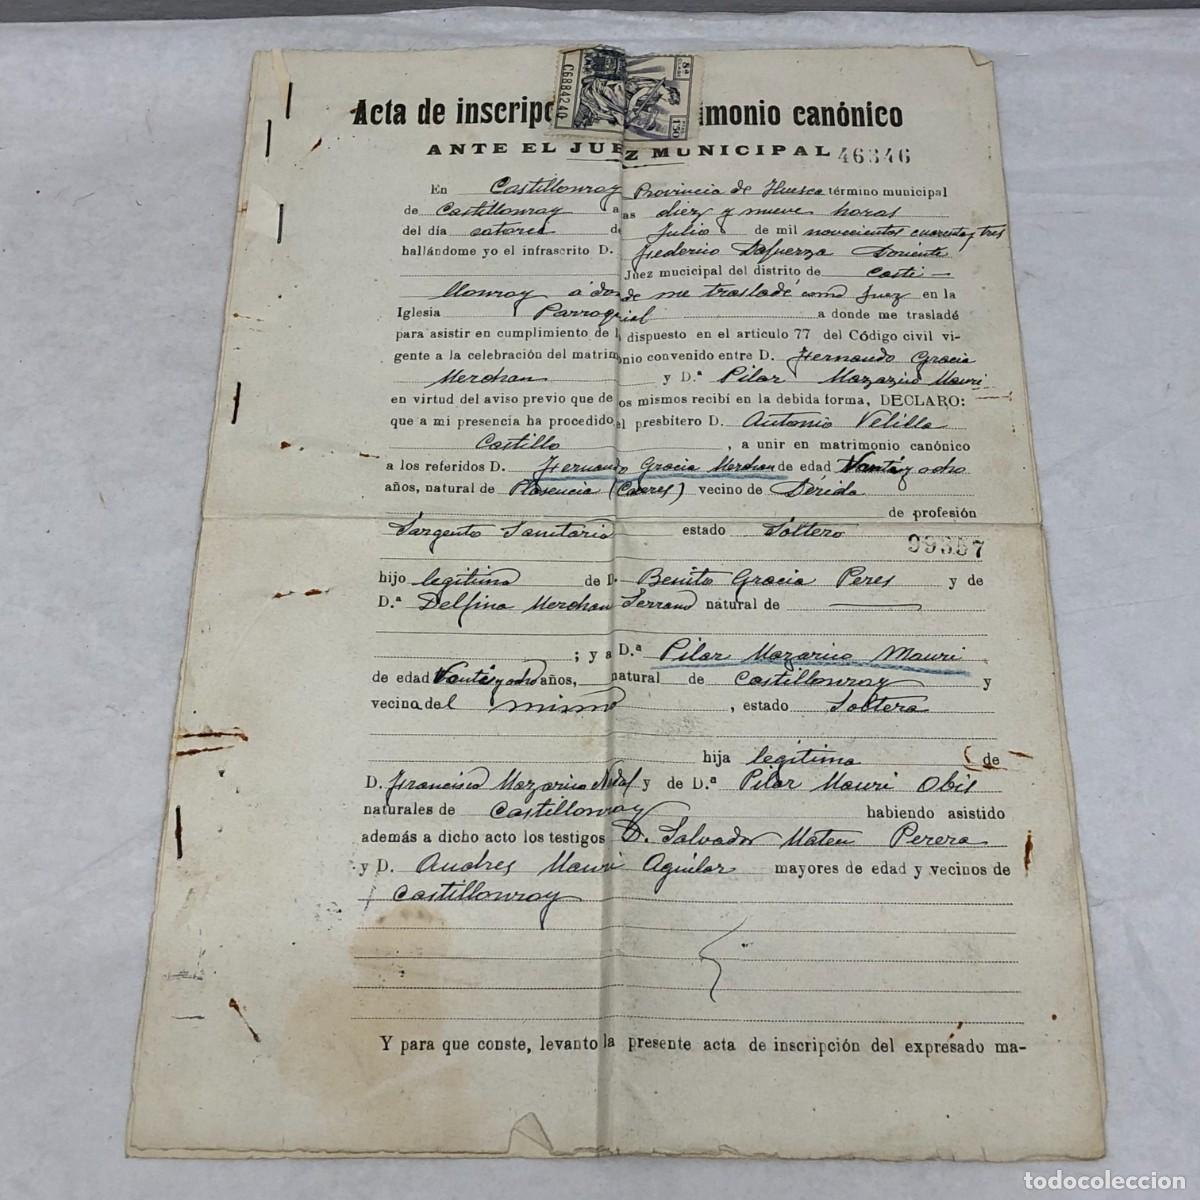 C6884240
8ª
CLASE
1'50
Acta de inscripc imonio canónico
ANTE EL JUEZ MUNICIPAL 46346
En Castillonroy Provincia de Huesca término municipal
de Castillonroy a as diez y nueve horas
del día catorce de Julio de mil novecientos cuarenta y tres
hallándome yo el infrascrito D. Federico Doriente
Juez mucicipal del distrito de Casti-
llonroy a donde me trasladé como Juez en la
Iglesia Parroquial a donde me trasladé
para asistir en cumplimiento de l dispuesto en el articulo 77 del Código civil vi-
gente a la celebración del matrimonio convenido entre D. Fernando Gracia
Merchan y D.ª Pilar Mazarico Mauri
en virtud del aviso previo que de os mismos recibí en la debida forma, DECLARO:
que a mi presencia ha procedido el presbítero D. Antonio Velilla
Castillo, a unir en matrimonio canónico
a los referidos D. Fernando Gracia Merchan de edad y ocho
años, natural de Plasencia (Caceres) vecino de Lérida
de profesión
Sargento Sanitario estado Soltero
99357
hijo legitimo de D. Benito Gracia Peres y de
D.ª Delfina Merchan Serrano natural de
; y a D.ª Pilar Mazarico Mauri
de edad y ocho años, natural de Castillonroy y
vecina del mismo, estado Soltera
hija legitima de
D. Francisco Mazarico Nadal y de D.ª Pilar Mauri Obis
naturales de Castillonroy habiendo asistido
además a dicho acto los testigos D. Salvador Mateu Perera
y D. Andres Mauri Aguilar mayores de edad y vecinos de
Castillonroy
Y para que conste, levanto la presente acta de inscripción del expresado ma-
todocoleccion